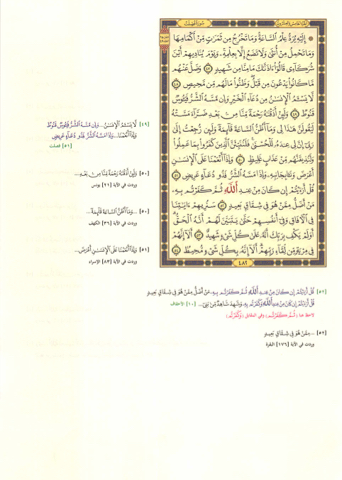 الجزء الخامس والعشرون
سورة فصلت
إِلَيْهِ يُرَدُّ عِلْمُ السَّاعَةِ وَمَا تَخْرُجُ مِن ثَمَرَٰتٍ مِّنْ أَكْمَامِهَا
وَمَا تَحْمِلُ مِنْ أُنثَىٰ وَلَا تَضَعُ إِلَّا بِعِلْمِهِۦ وَيَوْمَ يُنَادِيهِمْ أَيْنَ
شُرَكَآءِى قَالُوٓا۟ ءَاذَنَّٰكَ مَا مِنَّا مِن شَهِيدٍ ﴿٤٧﴾ وَضَلَّ عَنْهُم
مَّا كَانُوا۟ يَدْعُونَ مِن قَبْلُ وَظَنُّوا۟ مَا لَهُم مِّن مَّحِيصٍ ﴿٤٨﴾
لَّا يَسْـَٔمُ الْإِنسَٰنُ مِن دُعَآءِ الْخَيْرِ وَإِن مَّسَّهُ الشَّرُّ فَيَـُٔوسٌ
قَنُوطٌ ﴿٤٩﴾ وَلَئِنْ أَذَقْنَٰهُ رَحْمَةً مِّنَّا مِنۢ بَعْدِ ضَرَّآءَ مَسَّتْهُ
لَيَقُولَنَّ هَٰذَا لِى وَمَآ أَظُنُّ السَّاعَةَ قَآئِمَةً وَلَئِن رُّجِعْتُ إِلَىٰ
رَبِّىٓ إِنَّ لِى عِندَهُۥ لَلْحُسْنَىٰ فَلَنُنَبِّئَنَّ الَّذِينَ كَفَرُوا۟ بِمَا عَمِلُوا۟
وَلَنُذِيقَنَّهُم مِّنْ عَذَابٍ غَلِيظٍ ﴿٥٠﴾ وَإِذَآ أَنْعَمْنَا عَلَى الْإِنسَٰنِ
أَعْرَضَ وَنَـَٔا بِجَانِبِهِۦ وَإِذَا مَسَّهُ الشَّرُّ فَذُو دُعَآءٍ عَرِيضٍ ﴿٥١﴾
قُلْ أَرَءَيْتُمْ إِن كَانَ مِنْ عِندِ اللَّهِ ثُمَّ كَفَرْتُم بِهِۦ
مَنْ أَضَلُّ مِمَّنْ هُوَ فِى شِقَاقٍۭ بَعِيدٍ ﴿٥٢﴾ سَنُرِيهِمْ ءَايَٰتِنَا
فِى الْءَافَاقِ وَفِىٓ أَنفُسِهِمْ حَتَّىٰ يَتَبَيَّنَ لَهُمْ أَنَّهُ الْحَقُّ
أَوَلَمْ يَكْفِ بِرَبِّكَ أَنَّهُۥ عَلَىٰ كُلِّ شَىْءٍ شَهِيدٌ ﴿٥٣﴾ أَلَآ إِنَّهُمْ
فِى مِرْيَةٍ مِّن لِّقَآءِ رَبِّهِمْ أَلَآ إِنَّهُۥ بِكُلِّ شَىْءٍ مُّحِيطٌۢ ﴿٥٤﴾
٤٨٢
[٤٩] لَّا يَسْـَٔمُ الْإِنسَٰنُ ... وَإِن مَّسَّهُ الشَّرُّ فَيَـُٔوسٌ قَنُوطٌ
وَإِذَآ أَنْعَمْنَا ... وَإِذَا مَسَّهُ الشَّرُّ فَذُو دُعَآءٍ عَرِيضٍ
[٥١] فصلت
[٥٠] وَلَئِنْ أَذَقْنَٰهُ رَحْمَةً مِّنَّا مِنۢ بَعْدِ ...
وردت في الآية [٢١] يونس
[٥٠] ... وَمَآ أَظُنُّ السَّاعَةَ قَآئِمَةً ...
وردت في الآية [٣٦] الكهف
[٥١] وَإِذَآ أَنْعَمْنَا عَلَى الْإِنسَٰنِ أَعْرَضَ ...
وردت في الآية [٨٣] الاسراء
[٥٢] قُلْ أَرَءَيْتُمْ إِن كَانَ مِنْ عِندِ اللَّهِ ثُمَّ كَفَرْتُم بِهِۦ مَنْ أَضَلُّ مِمَّنْ هُوَ فِى شِقَاقٍۭ بَعِيدٍ
قُلْ أَرَءَيْتُمْ إِن كَانَ مِنْ عِندِ اللَّهِ وَكَفَرْتُم بِهِۦ وَشَهِدَ شَاهِدٌ مِّنۢ بَنِىٓ ... [١٠] الأحقاف
[٥٢] ... مِمَّنْ هُوَ فِى شِقَاقٍۭ بَعِيدٍ
وردت في الآية [١٧٦] البقرة